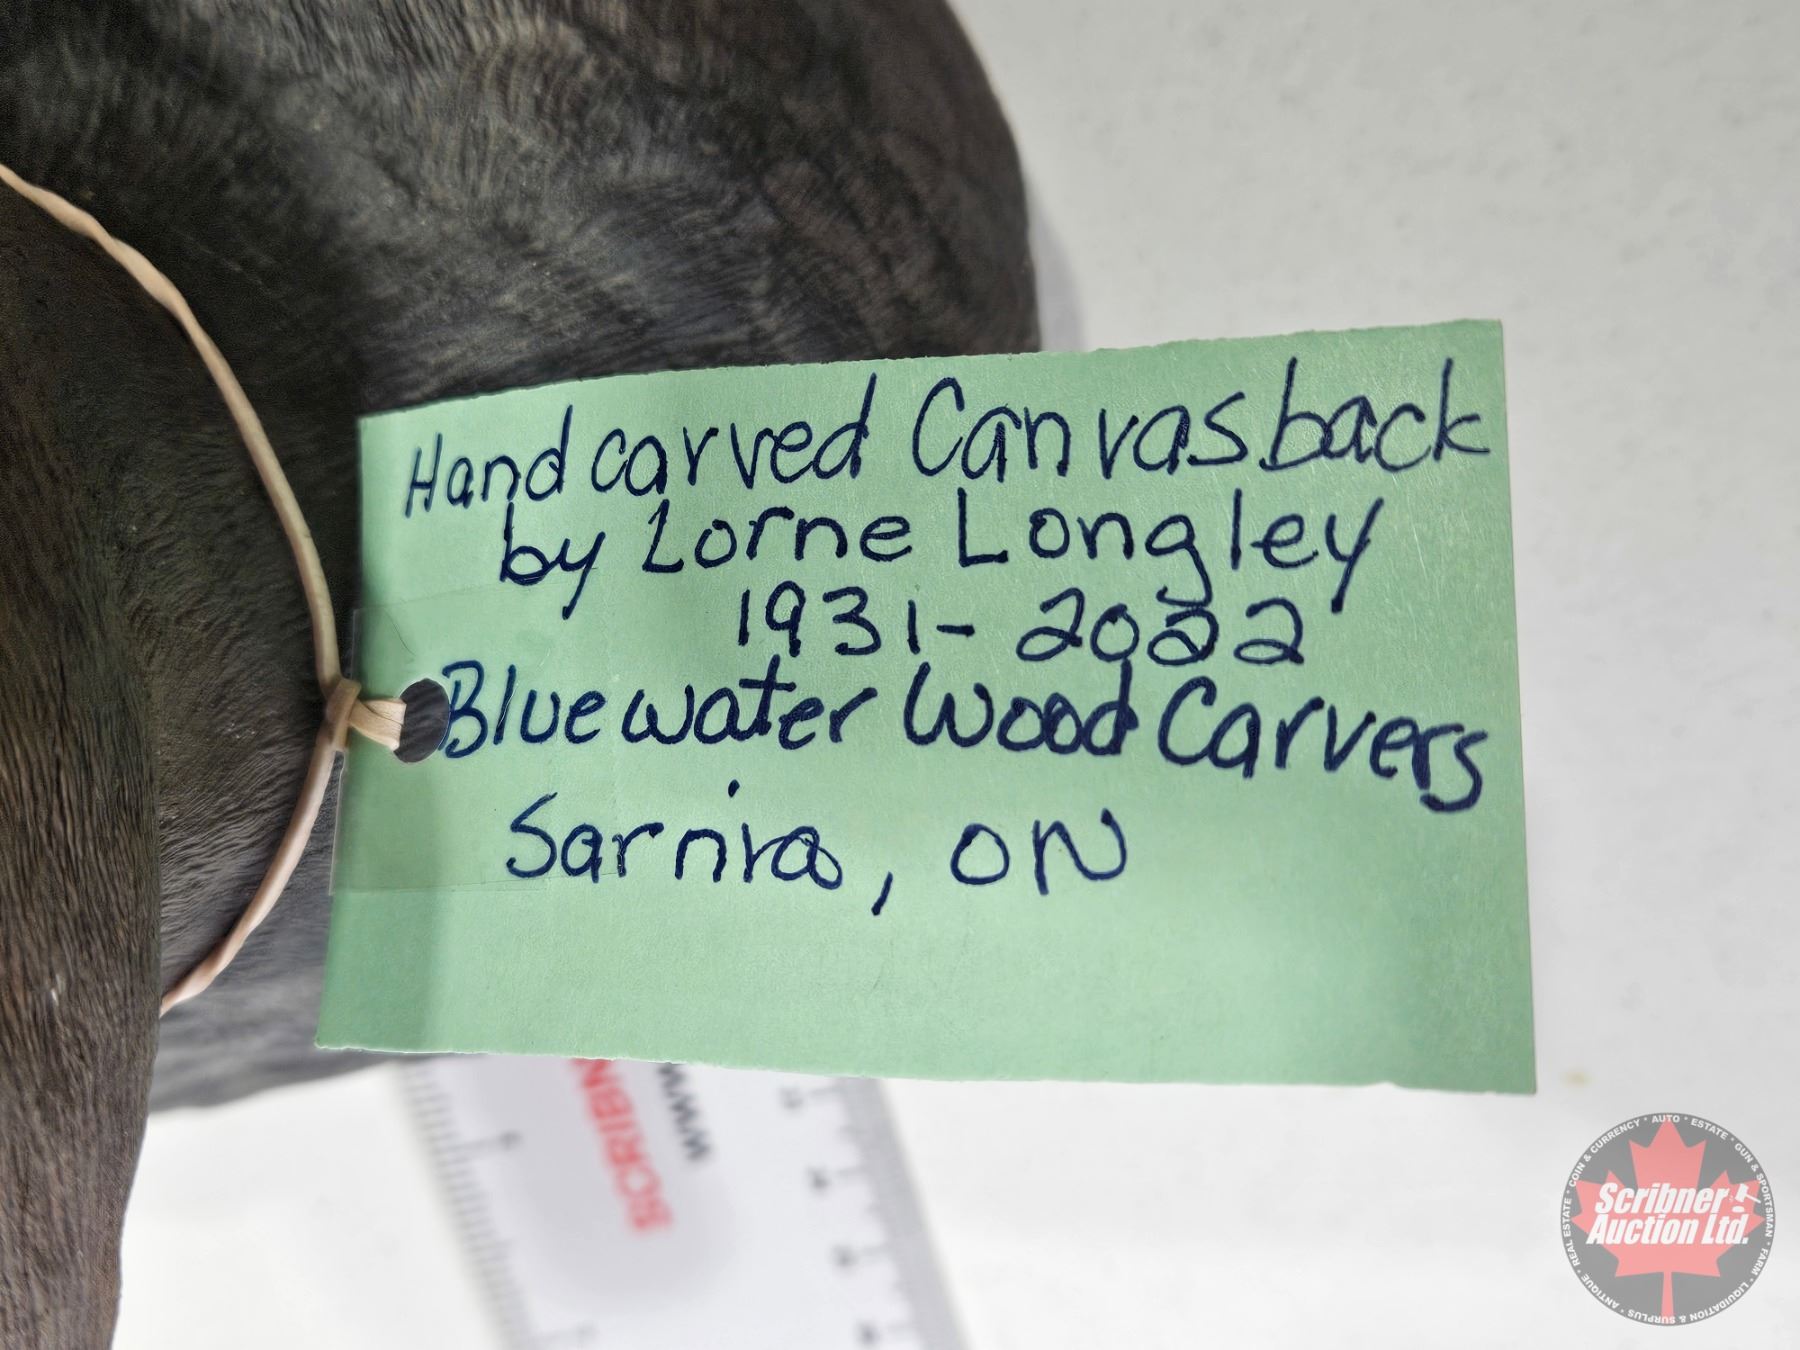 Hand carved Canvasback
by Lorne Longley
1931-2022
Bluewater Wood Carvers
Sarnia, ON
SCRIBN
WWW
Scribner
Auction Ltd.
REAL ESTATE * COIN & CURRENCY * AUTO * ESTATE * GUN & SPORTSMAN * FARM * LIQUIDATION & SURPLUS * ANTIQUE *